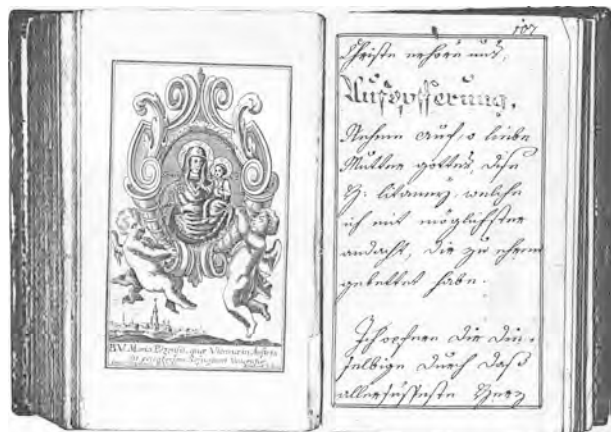 B.V. Maria quæ Viennæ in Austria
Refugium Veneratur
107
Christe erhöre uns,
Aufopfferung.
Nehme auf, o liebe
Mutter gottes, dise
H: litaney, welche
ich mit möglichster
andacht, dir zu ehren
gebettet habe.
Ich opfere dir die-
selbige durch daß
allersüsseste Herz